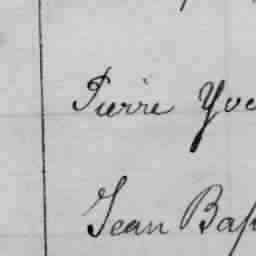 Pierre Yve
Jean Bap